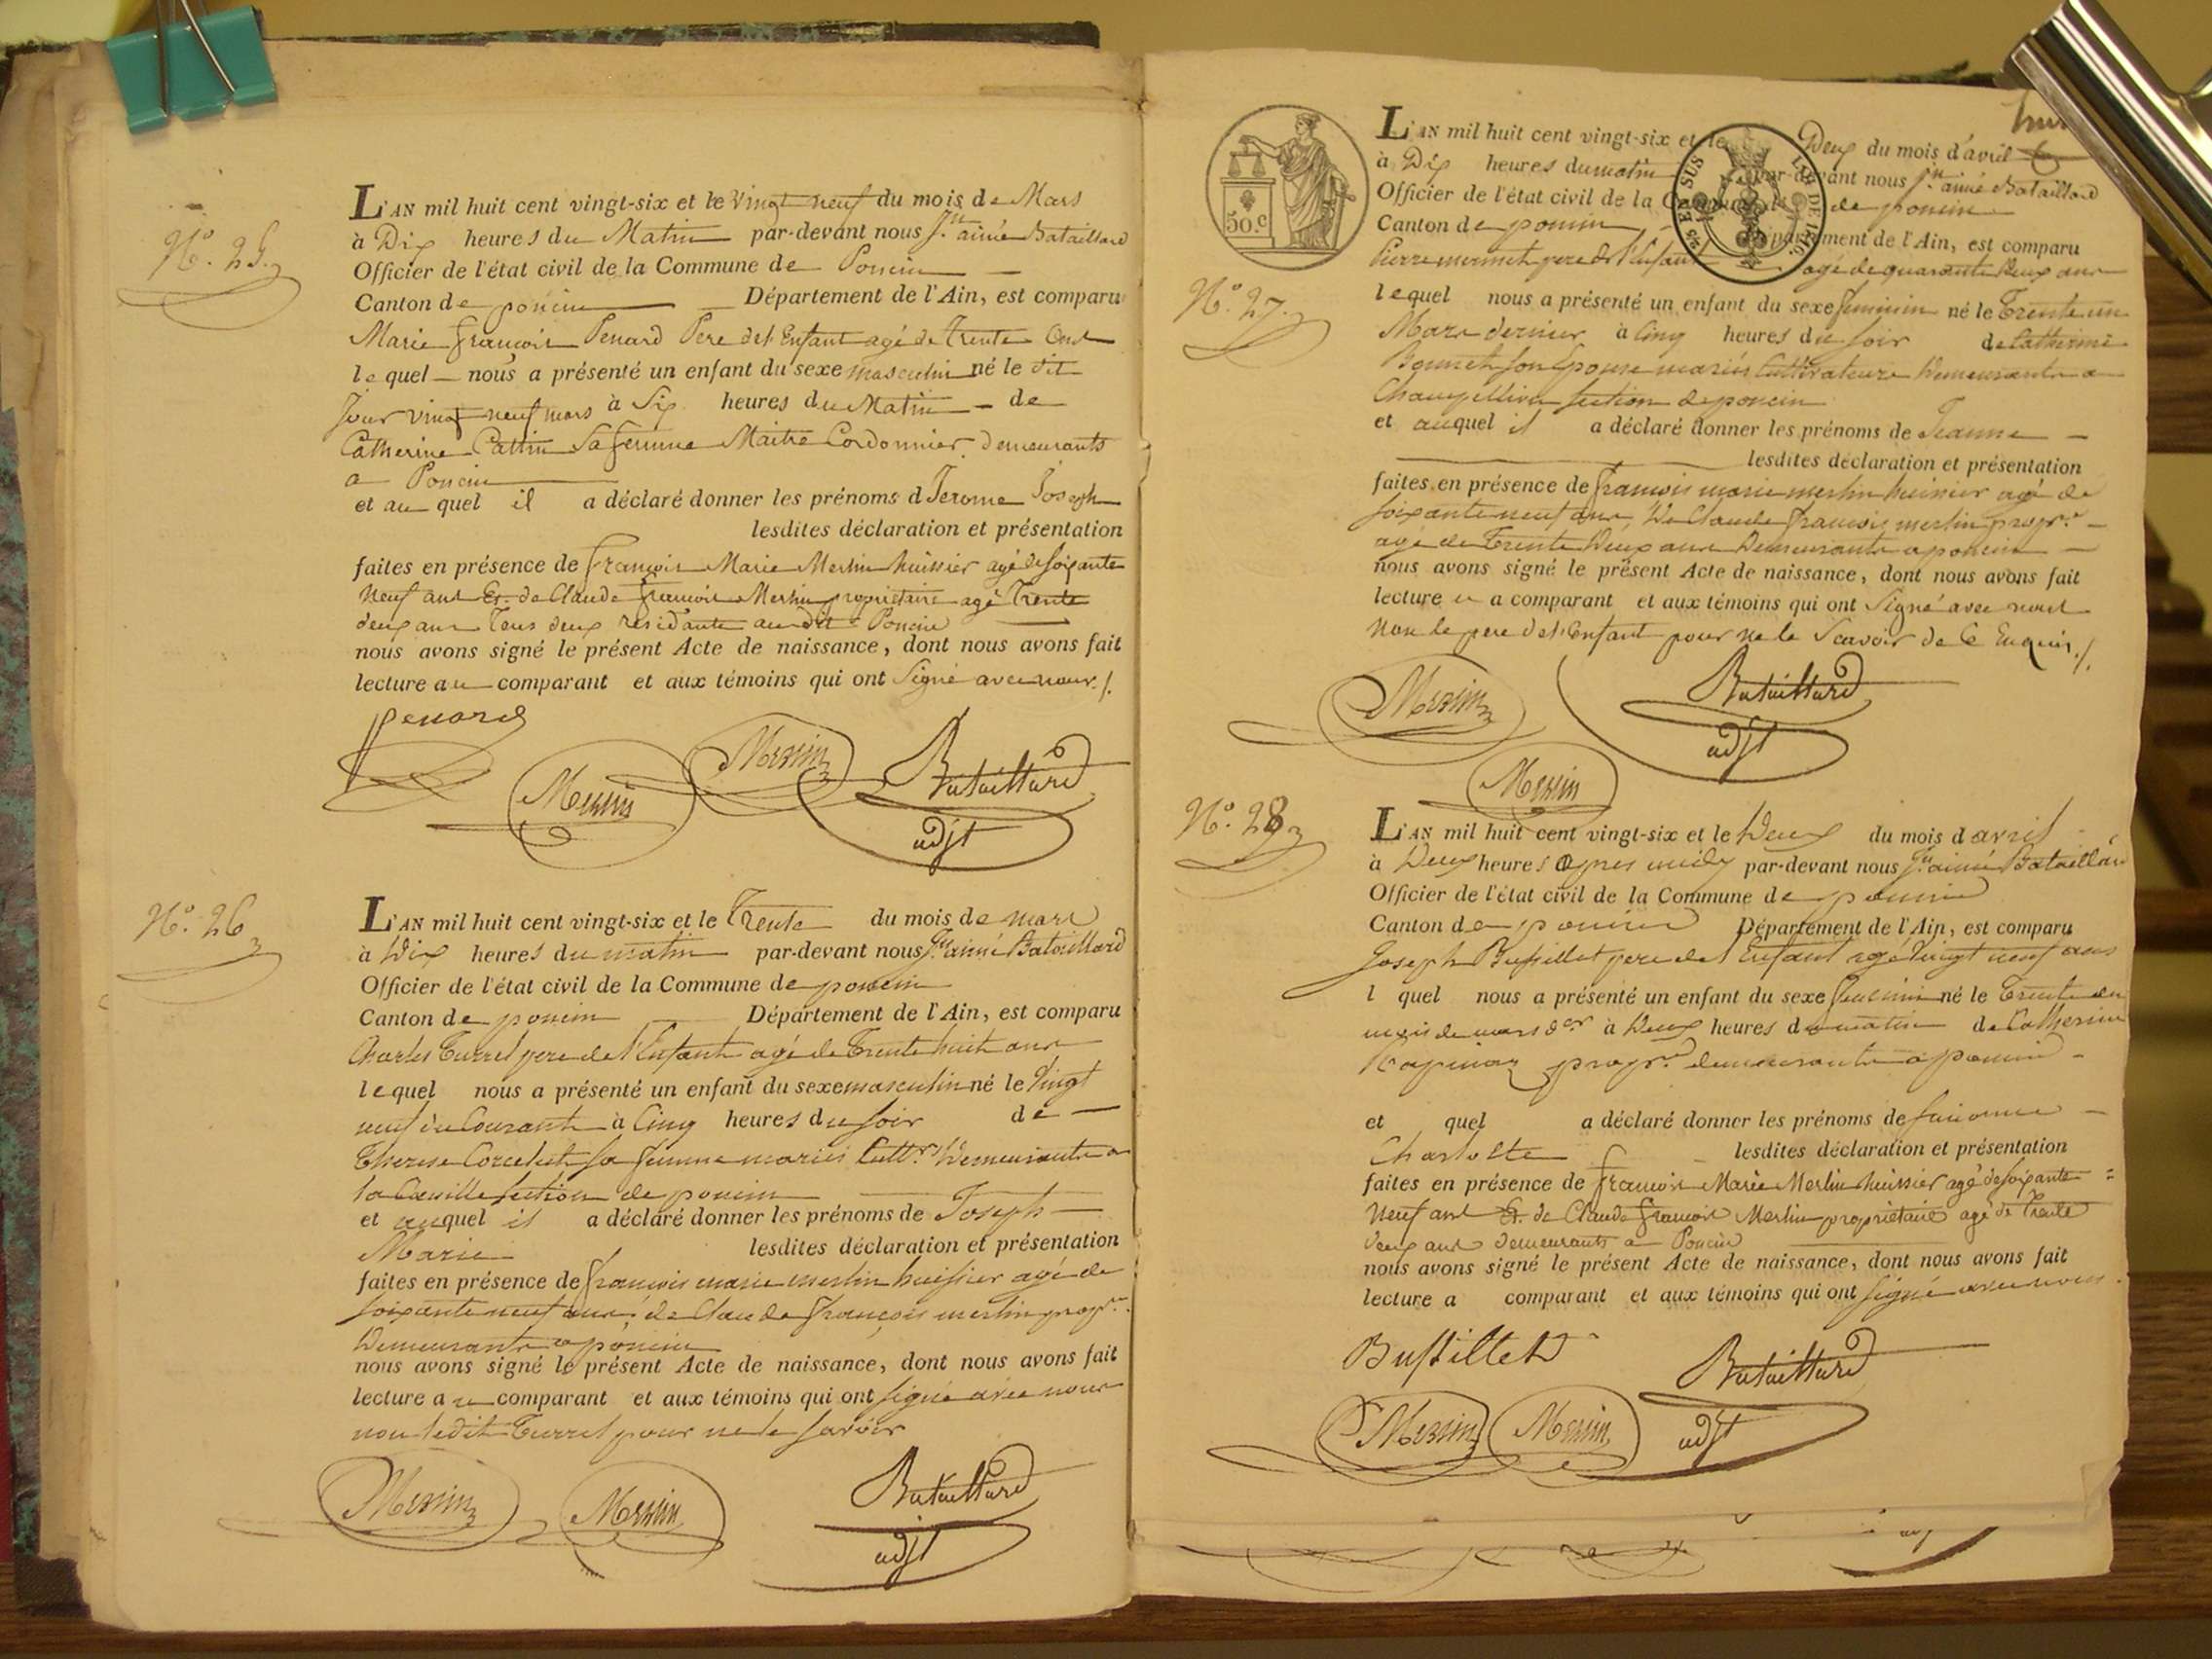 N.º 25.
L'AN mil huit cent vingt-six et le vingt neuf du mois de Mars
à Dix heures du Matin par-devant nous J.n aimé Bataillard
Officier de l'état civil de la Commune de Poncin
Canton de poncin Département de l'Ain, est comparu
Marie françois Penard Pere de l'Enfant agé de trente ans
lequel nous a présenté un enfant du sexe masculin né le dit
Jour vingt neuf mars à Six heures du Matin de
Catherine Cattin Sa femme Maitre Cordonnier demeurants
a Poncin
et au quel il a déclaré donner les prénoms d Jerome Joseph
lesdites déclaration et présentation
faites en présence de françois Marie Merlin huissier agé de soixante
neuf ans Et de Claude françois Merlin propriétaire agé trente
deux ans tous deux résidants au dit Poncin
nous avons signé le présent Acte de naissance, dont nous avons fait
lecture au comparant et aux témoins qui ont Signé avec nous ./.
Penard
Merlin
Merlin
Bataillard
adjt
N.º 26
L'AN mil huit cent vingt-six et le Trente du mois de mars
à Dix heures du matin par-devant nous J.n aimé Bataillard
Officier de l'état civil de la Commune de poncin
Canton de poncin Département de l'Ain, est comparu
Charles Turrel pere de l'Enfant agé de Trente huit ans
lequel nous a présenté un enfant du sexe masculin né le vingt
neuf du Courant à Cinq heures du soir de
Therese Corcelut sa femme mariés Cult.rs Demeurants a
la section de poncin
et auquel il a déclaré donner les prénoms de Joseph
Marie lesdites déclaration et présentation
faites en présence de françois marie merlin huissier agé de
soixante neuf ans, de Claude françois merlin propr.re
Demeurants a poncin
nous avons signé le présent Acte de naissance, dont nous avons fait
lecture au comparant et aux témoins qui ont signé avec nous
non ledit Turrel pour ne le savoir
Merlin
Merlin
Bataillard
adjt
50.c
EN SUS
LOI DE 1816.
L'AN mil huit cent vingt-six et le Deux du mois d'avril
à Dix heures du matin par-devant nous J.n aimé Bataillard
Officier de l'état civil de la Commune de poncin
Canton de poncin Département de l'Ain, est comparu
Pierre mermet pere de l'Enfant agé de quarante Deux ans
N.º 27.
lequel nous a présenté un enfant du sexe feminin né le Trente un
Mars dernier à Cinq heures du soir de Catherine
Bonnet son Epouse mariés Cultivateurs Demeurants a
section de poncin
et auquel il a déclaré donner les prénoms de Jeanne
lesdites déclaration et présentation
faites en présence de françois marie merlin huissier agé de
soixante neuf ans, De Claude françois merlin propr.re
agé de Trente Deux ans Demeurants a poncin
nous avons signé le présent Acte de naissance, dont nous avons fait
lecture au comparant et aux témoins qui ont Signé avec nous
non le pere de l'Enfant pour ne le Scavoir de Ce Enquis ./.
Merlin
Bataillard
adjt
Merlin
N.º 28
L'AN mil huit cent vingt-six et le Deux du mois d avril
à Deux heures après midy par-devant nous J.n aimé Bataillard
Officier de l'état civil de la Commune de poncin
Canton de poncin Département de l'Ain, est comparu
Joseph Bussillet pere de l'Enfant agé vingt neuf ans
l quel nous a présenté un enfant du sexe feminin né le Trente un
mois de mars d.er à Deux heures du matin de Catherine
propr.re demeurants a poncin
et quel a déclaré donner les prénoms de
Charlotte lesdites déclaration et présentation
faites en présence de françois Marie Merlin huissier agé de soixante
neuf ans Et de Claude françois Merlin propriétaire agé de trente
deux ans demeurants a Poncin
nous avons signé le présent Acte de naissance, dont nous avons fait
lecture a comparant et aux témoins qui ont signé avec nous.
Bussillet
Bataillard
adjt
Merlin
Merlin